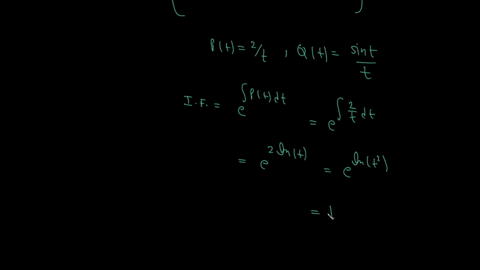 P(t) = 2/t , Q(t) = sint/t
I.F. = e^∫P(t)dt = e^∫2/t dt
= e^2ln(t) = e^ln(t²)
=